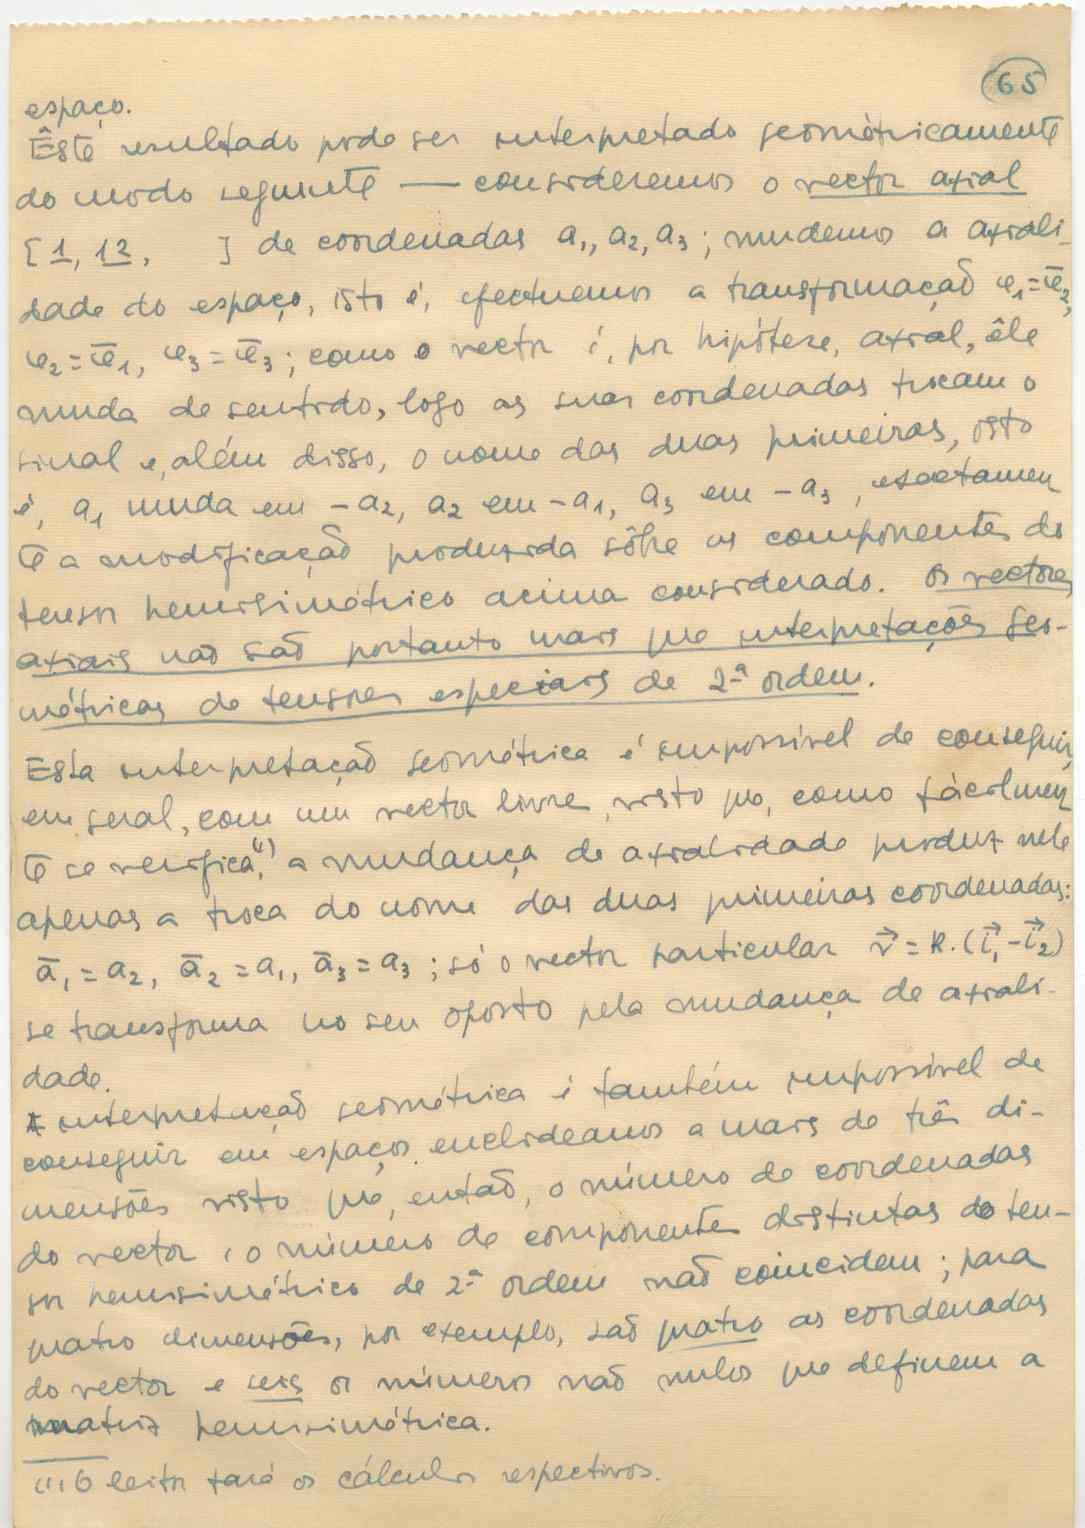 65
espaço.
Êste resultado pode ser interpretado geomètricamente
do modo seguinte — consideremos o vector axial
[1, 12, ] de coordenadas a₁, a₂, a₃; mudemos a axiali-
dade do espaço, isto é, efectuemos a transformação e₁=ē₂,
e₂=ē₁, e₃=ē₃; como o vector é, por hipótese, axial, êle
muda de sentido, logo as suas coordenadas trocam o
sinal e, além disso, o nome das duas primeiras, isto
é, a₁ muda em -a₂, a₂ em -a₁, a₃ em -a₃, exactamen
te a modificação produzida sôbre as componentes do
tensor hemisimétrico acima considerado. Os vectores
axiais não são portanto mais que interpretações geo-
métricas de tensores especiais de 2ª ordem.
Esta interpretação geométrica é impossível de conseguir,
em geral, com um vector livre, visto que, como fàcilmen
te se verifica⁽¹⁾, a mudança de axialidade produz nele
apenas a troca do nome das duas primeiras coordenadas:
ā₁=a₂, ā₂=a₁, ā₃=a₃; só o vector particular v⃗=k.(i⃗₁-i⃗₂)
se transforma no seu oposto pela mudança de axiali-
dade.
A interpretação geométrica é também impossível de
conseguir em espaços euclideanos a mais de três di-
mensões visto que, então, o número de coordenadas
do vector e o número de componentes distintas do ten-
sor hemisimétrico de 2ª ordem não coincidem; para
quatro dimensões, por exemplo, são quatro as coordenadas
do vector e seis os números não nulos que definem a
matriz hemisimétrica.
(1) O leitor fará os cálculos respectivos.